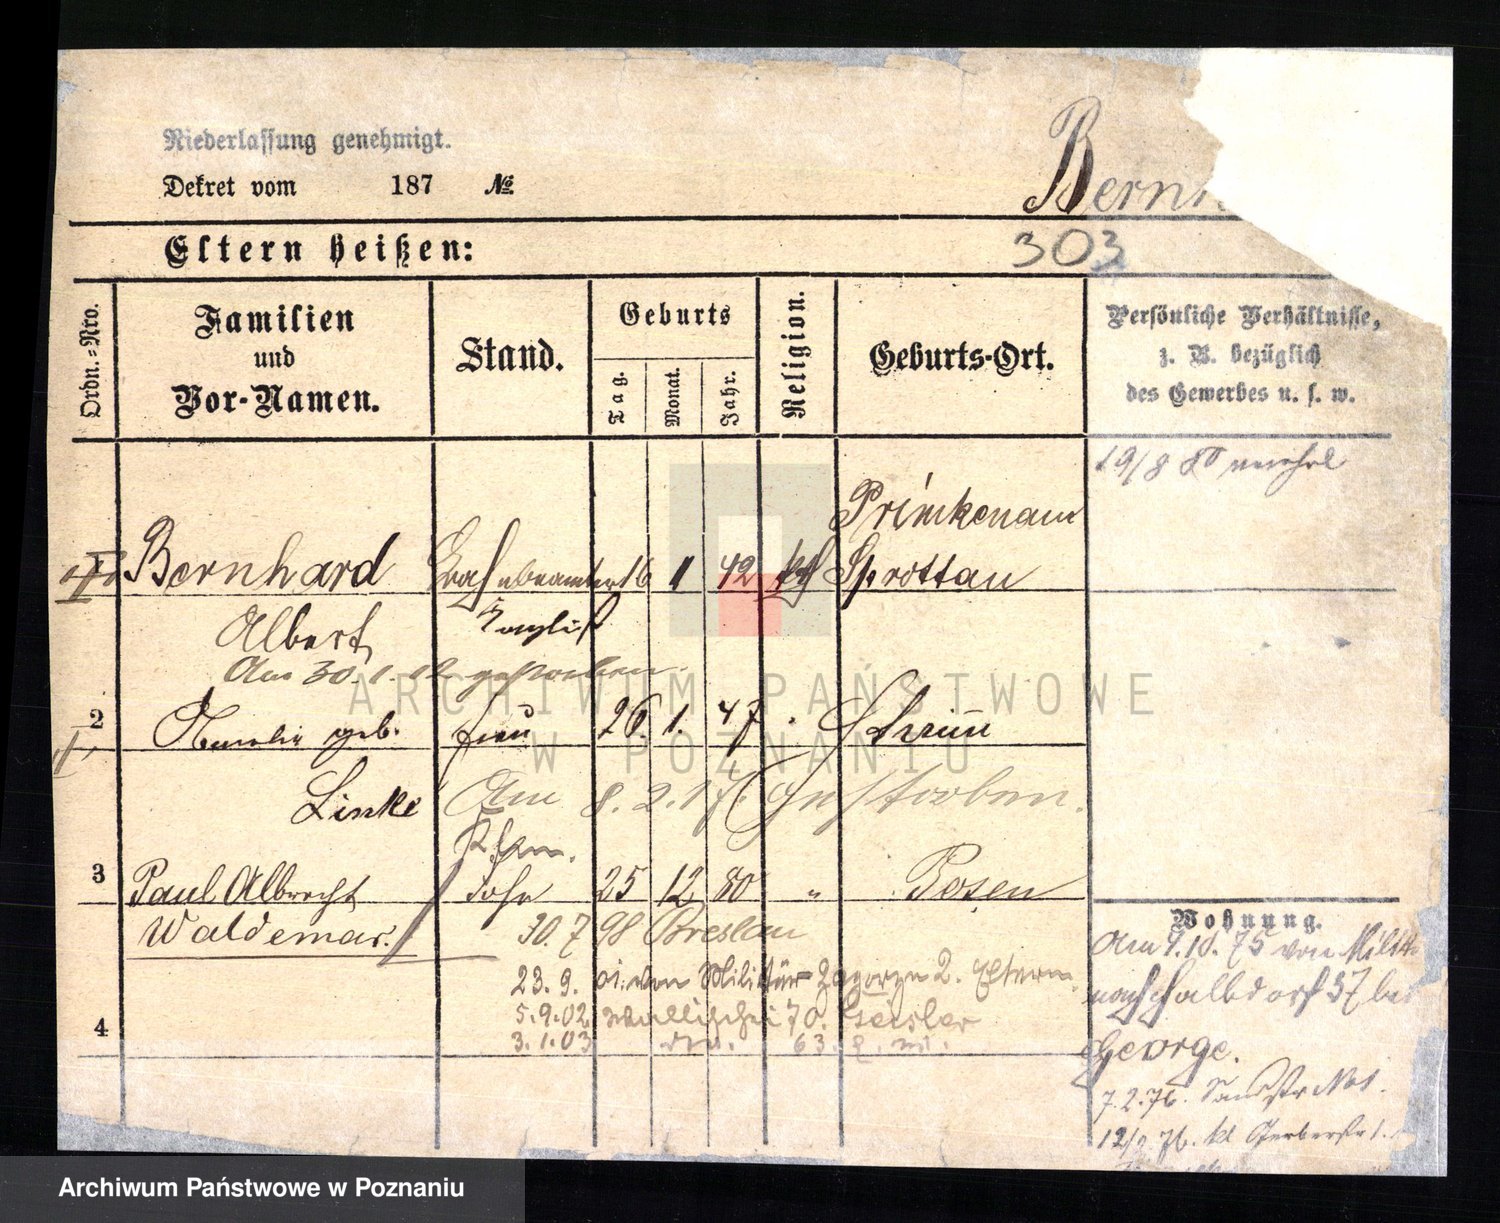 Niederlassung genehmigt.
Dekret vom 187 No.
Bernh
Eltern heißen:
303
Ordn.=Nro.
Familien
und
Vor-Namen.
Stand.
Geburts
Tag.
Monat.
Jahr.
Religion.
Geburts-Ort.
Persönliche Verhältnisse,
z. B. bezüglich
des Gewerbes u. s. w.
19/8 80
Primkenau
Bernhard 16 1 42 Sprottau
Albert Kanzlist
Am 30.1. gestorben.
2 Amalie geb. frau 26. 1. 47 Schrimm
Linke Am 8. 2. 17 Gestorben.
3 Paul Albrecht Sohn 25 12 80 " Posen
Waldemar. 30. 7 98 Breslau
Wohnung.
Am 9.10.75 von
23. 9. 01. von Militär Zagorze 2. Eltern.
37 bei
5.9.02 Wallischei 70. Geisler
4
3.1.03 63.
George.
7.2.76. Sandstr No 1.
12/2 76. kl Gerberstr 1.
ARCHIWUM PAŃSTWOWE
W POZNANIU
Archiwum Państwowe w Poznaniu